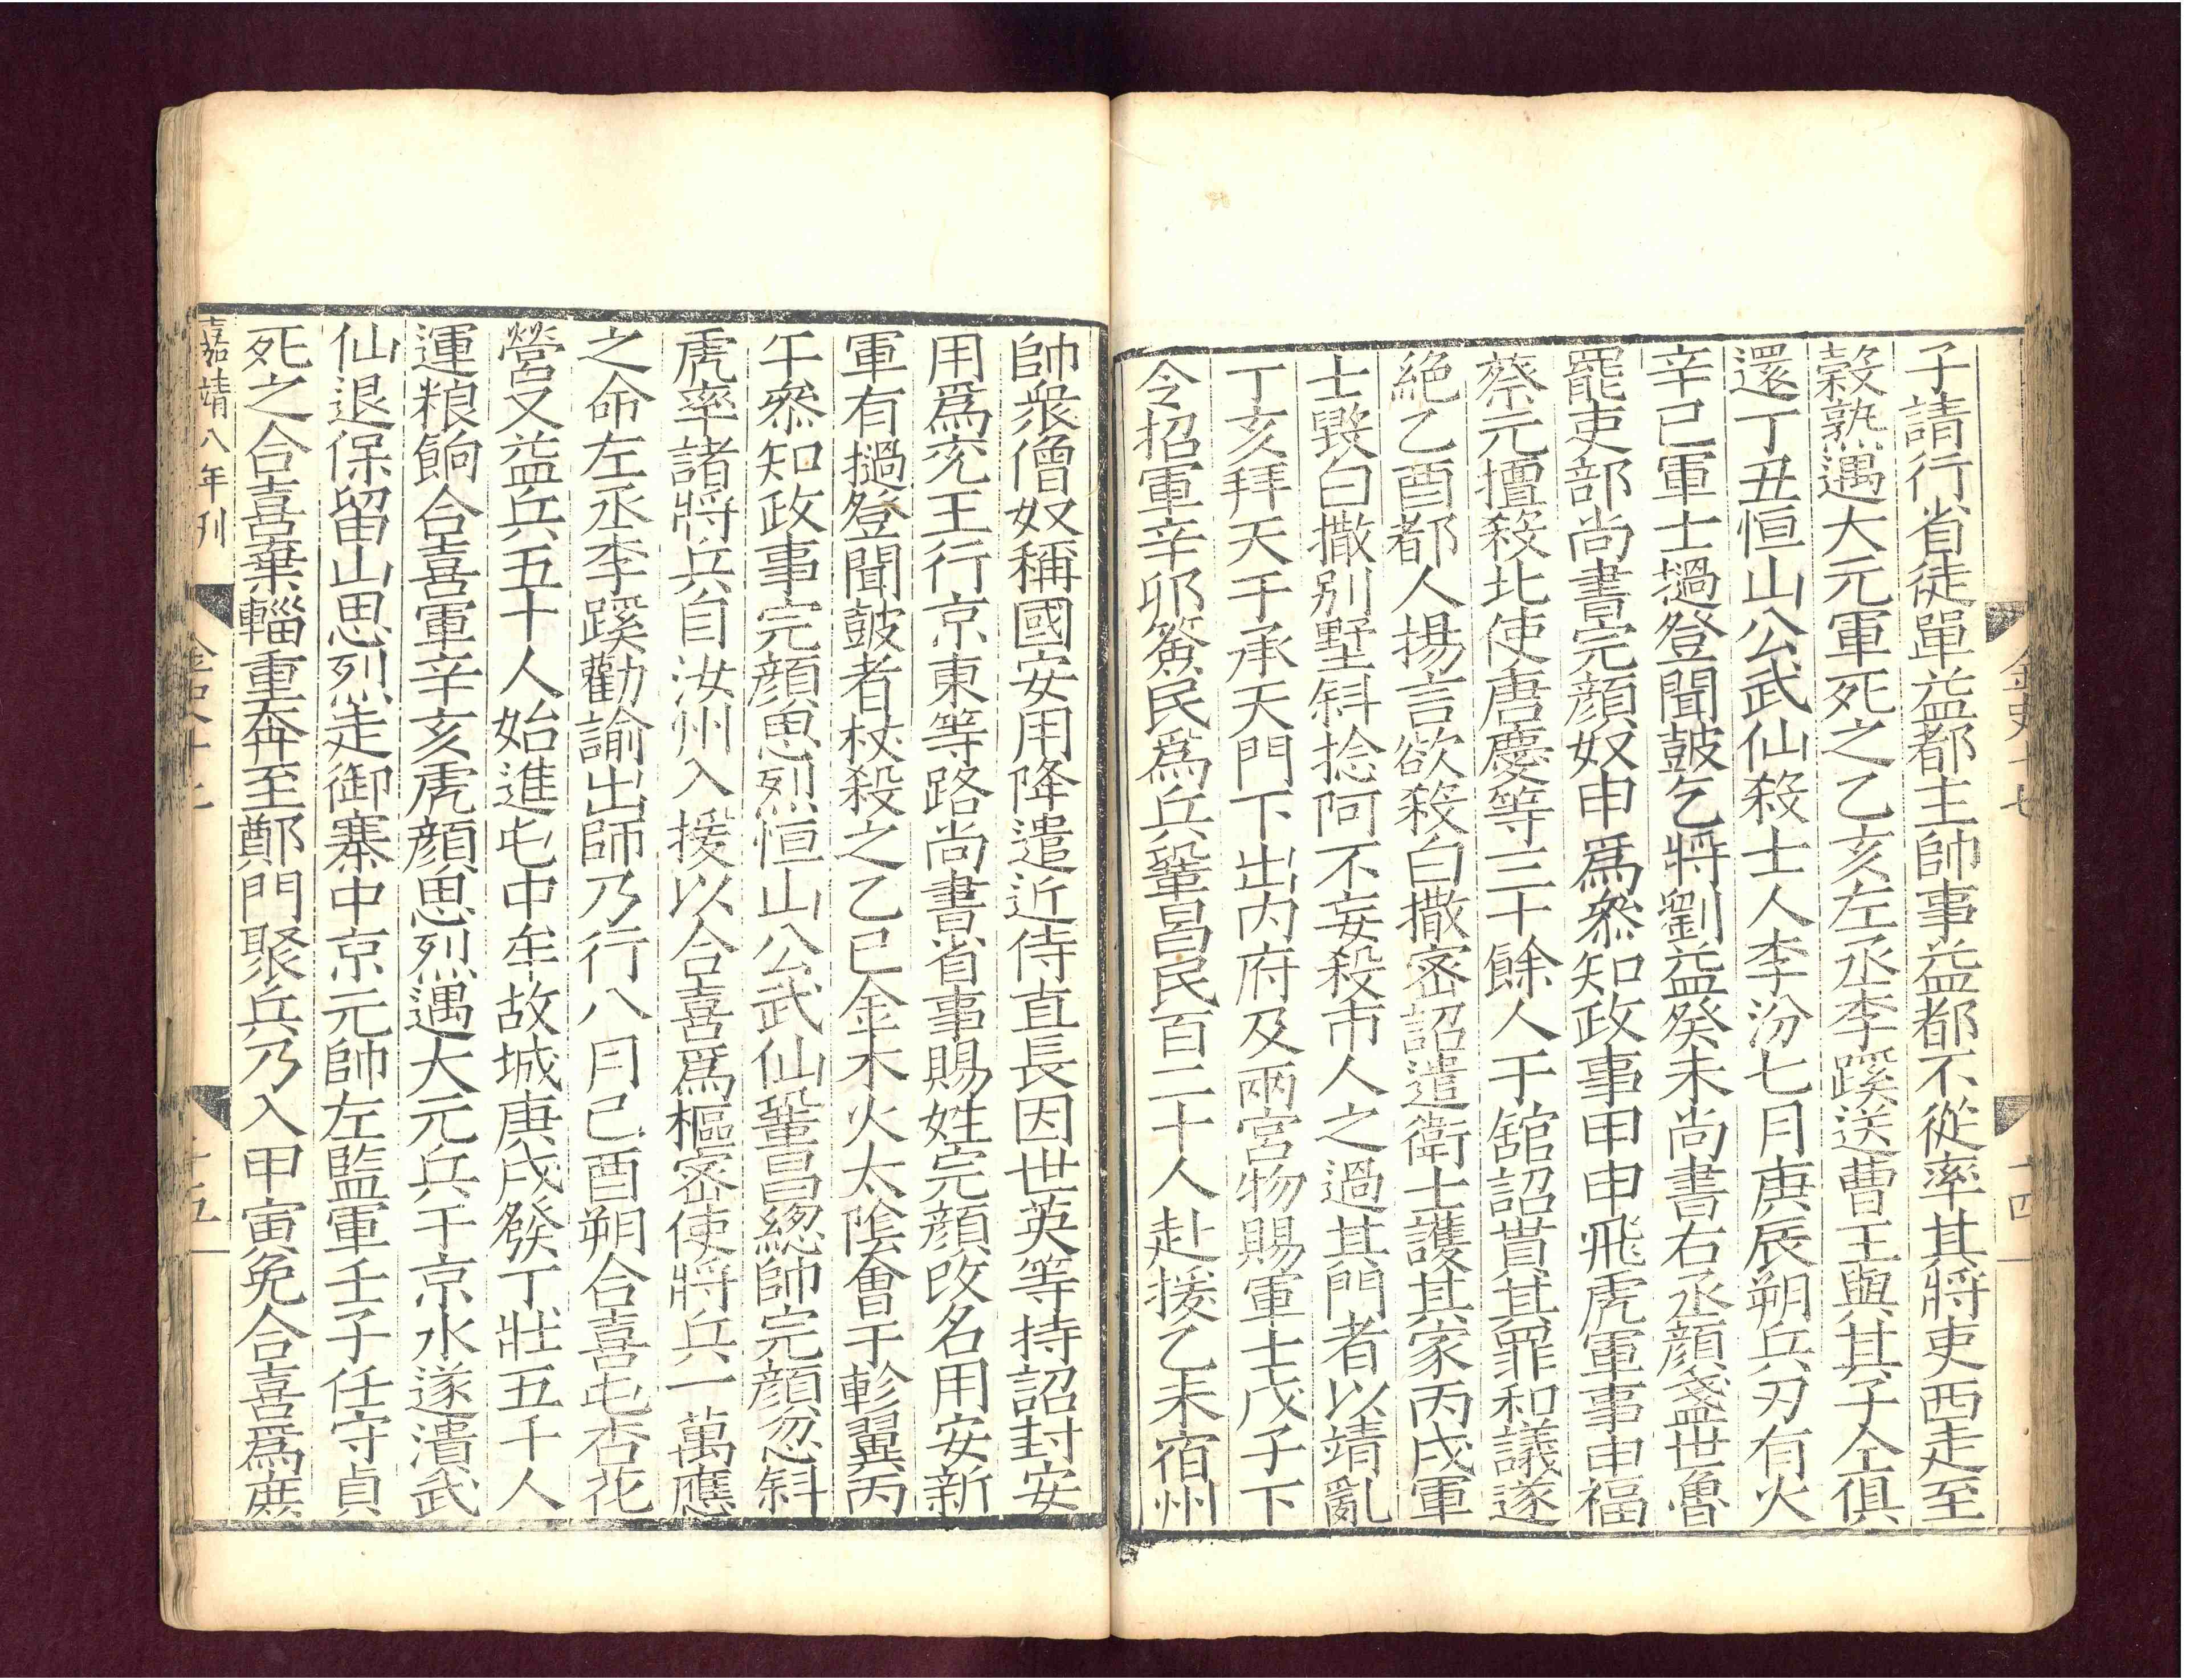 金史十七
十四
子請行省徒單益都主帥事益都不從率其將吏西走至
穀熟遇大元軍死之乙亥左丞李蹊送曹王與其子仝俱
還丁丑恒山公武仙殺士人李汾七月庚辰朔兵刃有火
辛巳軍士撾登聞鼓乞將劉益癸未尚書右丞顏盞世魯
罷吏部尚書完顏奴申爲叅知政事甲申飛虎軍事申福
蔡元擅殺北使唐慶等三十餘人于舘詔貰其罪和議遂
絕乙酉都人揚言欲殺白撒密詔遣衛士護其家丙戌軍
士毀白撒別墅斜捻阿不妄殺市人之過其門者以靖亂
丁亥拜天于承天門下出内府及兩宮物賜軍士戊子下
令招軍辛卯簽民爲兵鞏昌民百二十人赴援乙未宿州
帥衆僧奴稱國安用降遣近侍直長因世英等持詔封安
用爲兖王行京東等路尚書省事賜姓完顏改名用安新
軍有撾登聞鼓者杖殺之乙巳金木火太陰會于軫翼丙
午叅知政事完顏思烈恒山公武仙鞏昌緫帥完顏忽斜
虎率諸將兵自汝州入援以合喜爲樞密使將兵一萬應
之命左丞李蹊勸諭出師乃行八月己酉朔合喜屯杏花
營又益兵五千人始進屯中牟故城庚戌發丁壯五千人
運粮餉合喜軍辛亥虎顏思烈遇大元兵于京水遂潰武
仙退保留山思烈走御寨中京元帥左監軍壬子任守貞
死之合喜棄輜重奔至鄭門聚兵乃入甲寅免合喜爲庶
嘉靖八年刊
金史十七
十五